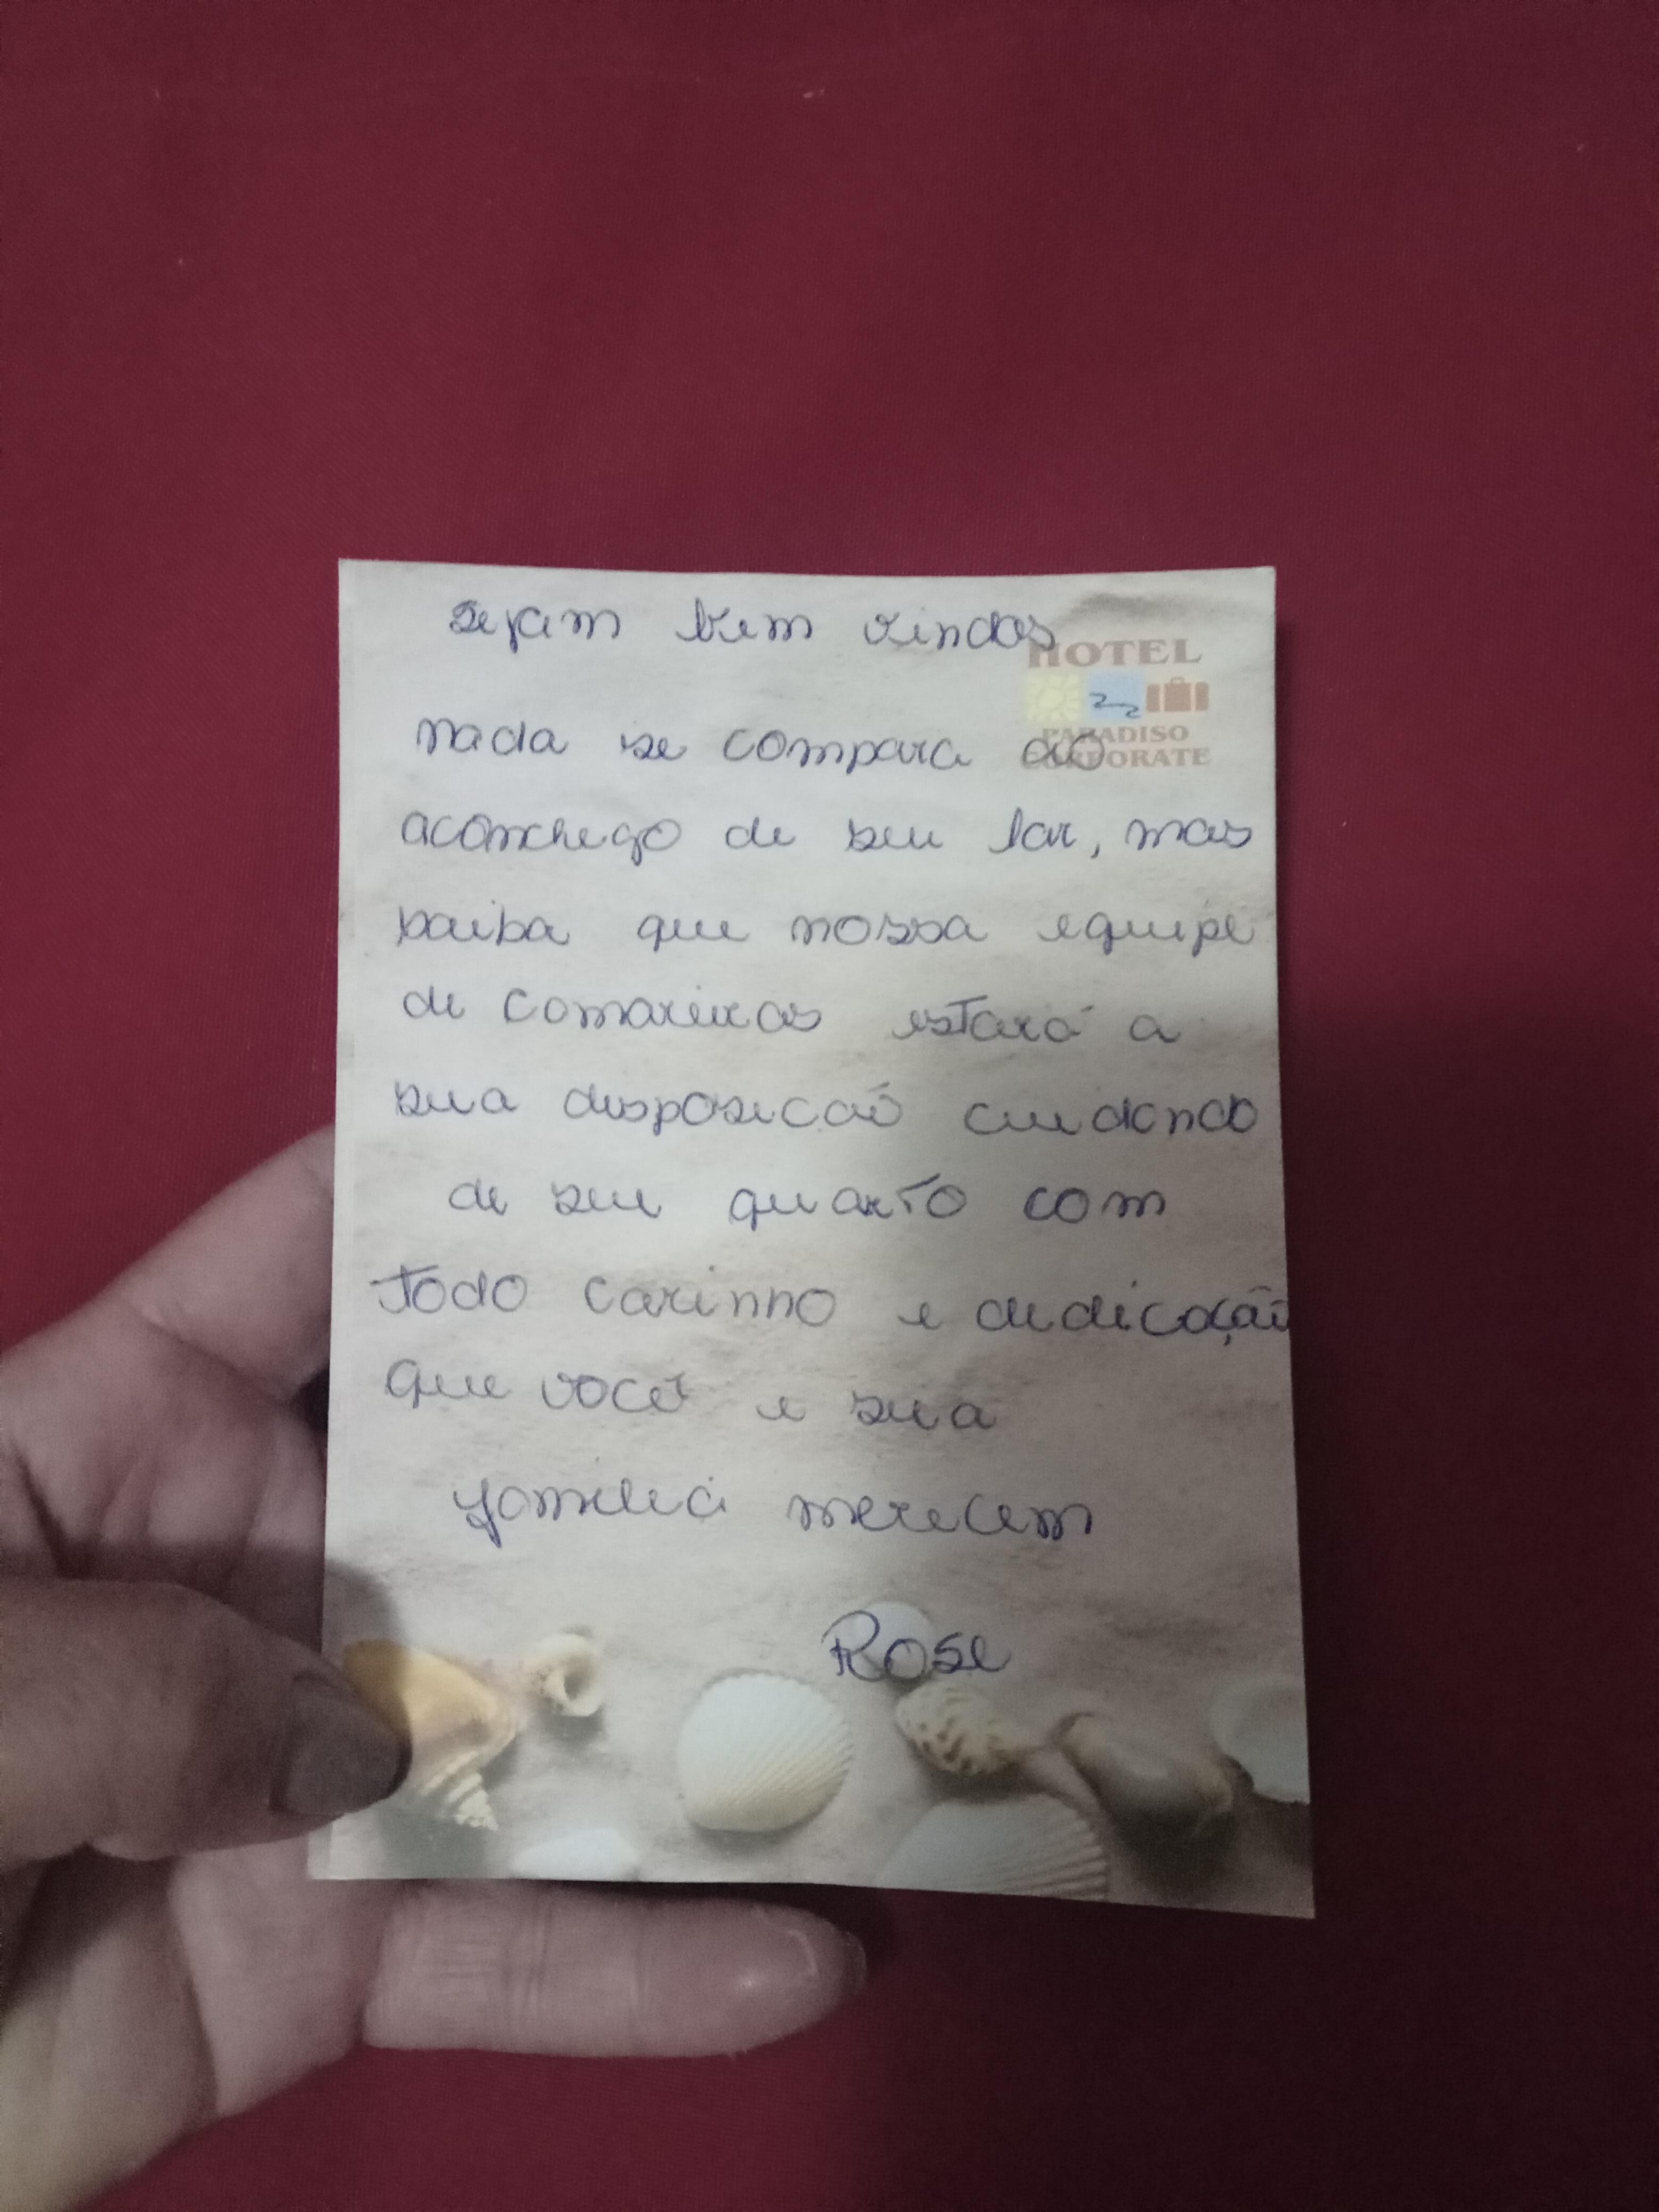 sejam bem vindos
HOTEL
PARADISO
CORPORATE
nada se compara ao
aconchego de seu lar, mas
saiba que nossa equipe
de camareiras estará a
sua disposicaõ cuidando
de seu quarto com
todo carinho e dedicaçaõ
que você e sua
familia merecem
Rose